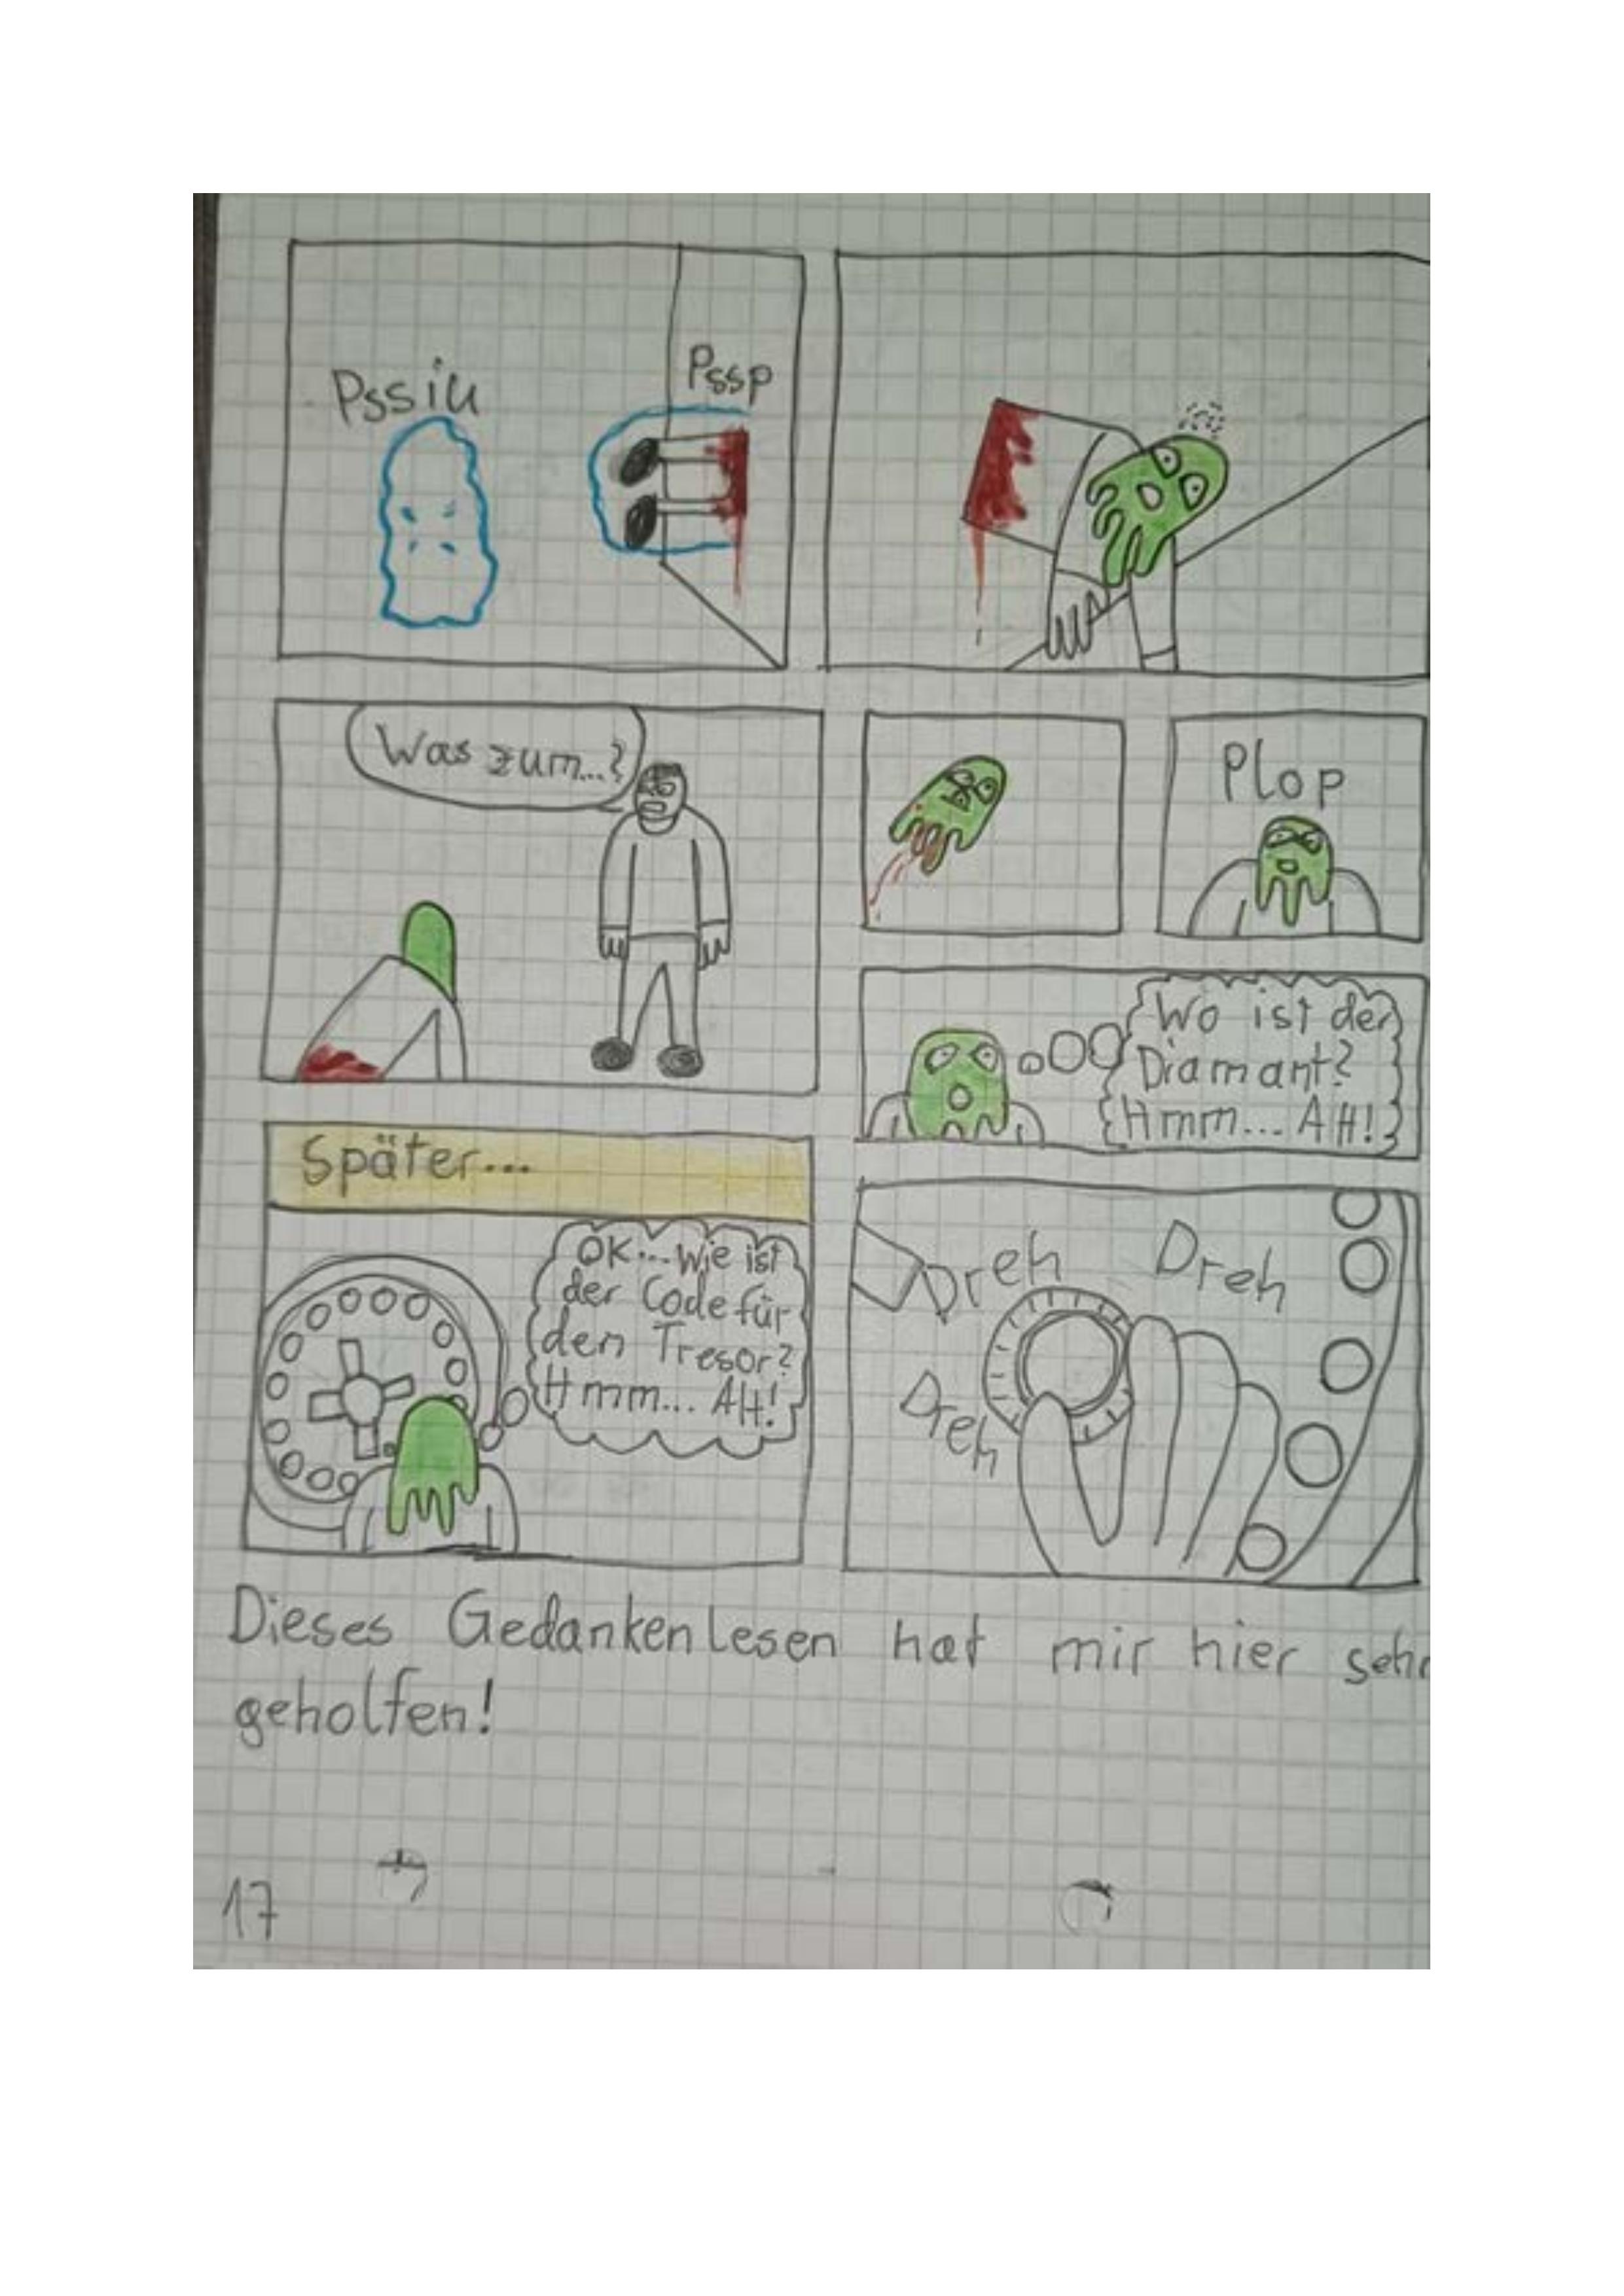 Pssiu
Pssp
Was zum...?
Plop
Wo ist der
Diamant?
Hmm... AH!
Später...
OK...Wie ist
der Code für
den Tresor?
Hmm... AH!
Dreh
Dreh
Dreh
Dieses Gedankenlesen hat mir hier sehr
geholfen!
17